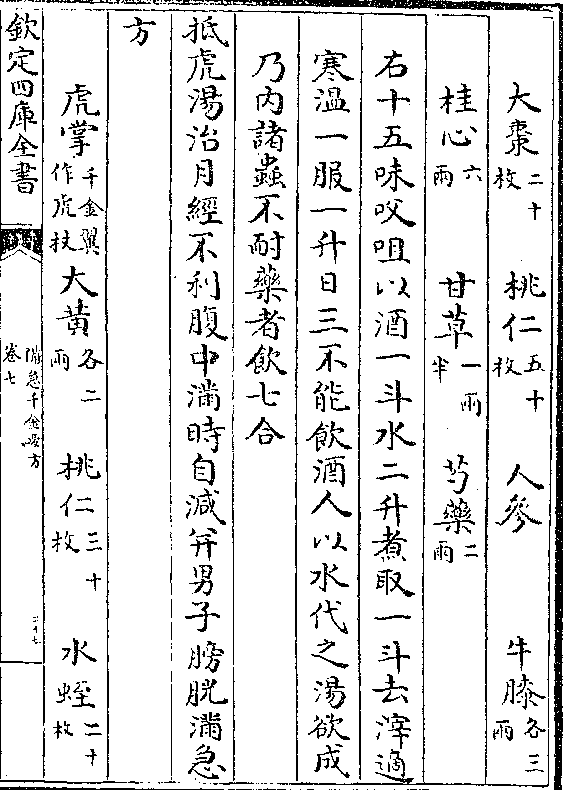 大棗二十枚 桃仁五十枚 人參 牛膝各三兩
桂心六兩 甘草一兩半 芍藥二兩
右十五味㕮咀以酒一斗水二升煮取一斗去滓適
寒溫一服一升日三不能飲酒人以水代之湯欲成
乃内諸蟲不耐藥者飲七合
抵虎湯治月經不利腹中滿時自減并男子膀胱滿急
方
虎掌千金翼作虎杖 大黃各二兩 桃仁三十枚 水蛭二十枚
欽定四庫全書
備急千金要方
卷七
二十七